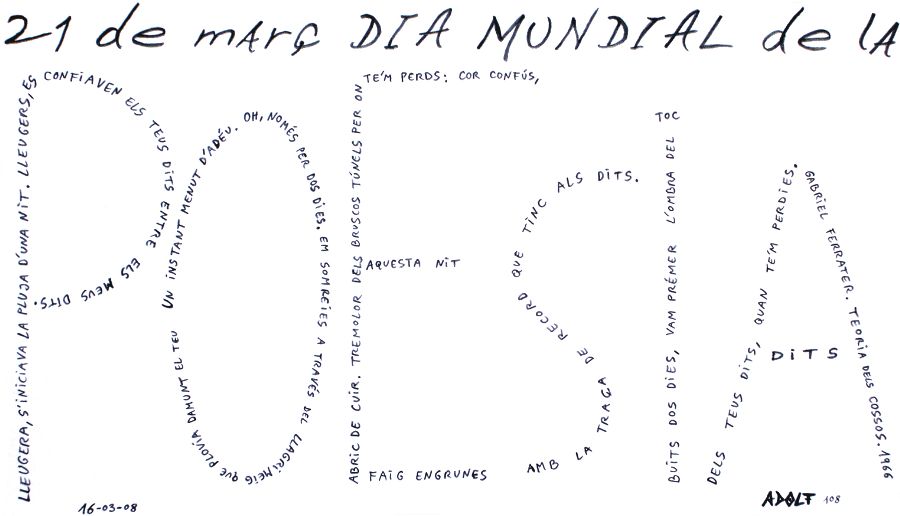 21 de mArç DIA MUNDIAL de lA
LLEUGERA, S'INICIAVA LA PLUJA D'UNA NIT. LLEUGERS, ES
CONFIAVEN ELS TEUS DITS ENTRE ELS MEUS DITS.
UN INSTANT MENUT D'ADÉU.
OH, NOMÉS PER DOS DIES. EM SOMREIES A TRAVÉS DEL LLAGRIMEIG QUE PLOVIA DAMUNT EL TEU
ABRIC DE CUIR. TREMOLOR DELS BRUSCOS TÚNELS PER ON
TE'M PERDS: COR CONFÚS,
AQUESTA NIT
FAIG ENGRUNES
AMB LA TRAÇA DE RECORD QUE TINC ALS DITS.
BUITS DOS DIES, VAM PRÉMER L'OMBRA DEL
TOC
DELS TEUS DITS, QUAN TE'M PERDIES.
DITS
GABRIEL FERRATER. TEORIA DELS COSSOS. 1966
16-03-08
ADOLF 108